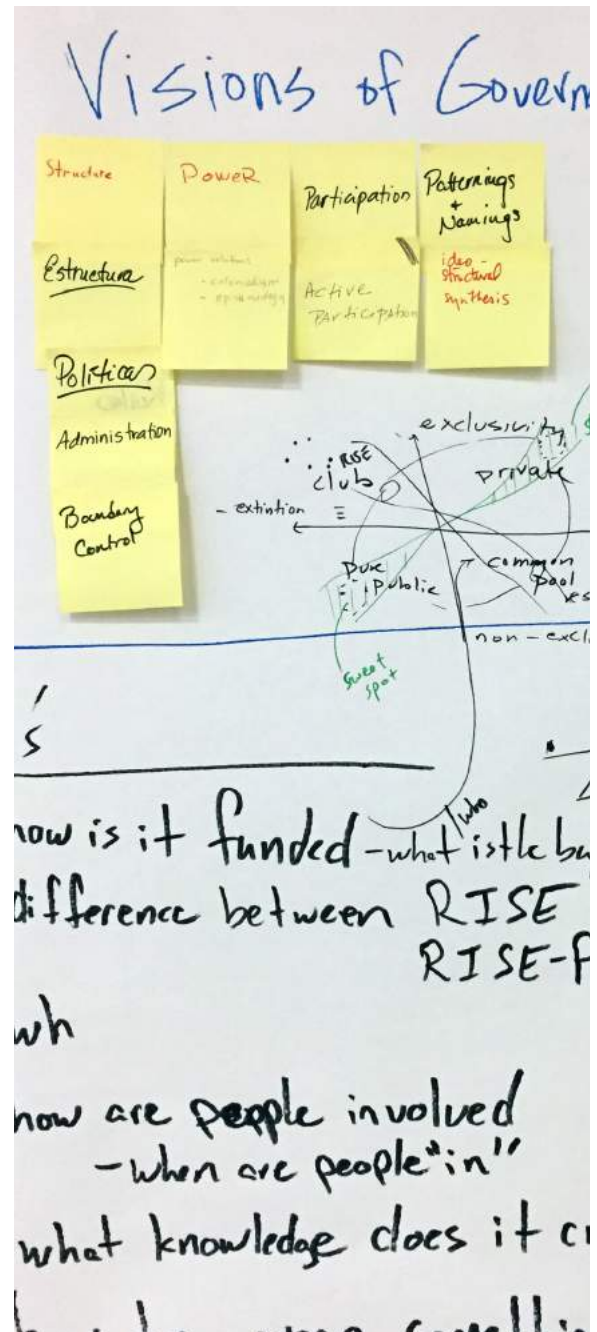 Visions of Govern
Structure
Power
Participation
Patternings
+
Namings
Estructura
power relations
• colonialism
• epistemology
Active
Participation
ideo-
structural
synthesis
Políticas
Administration
Boundary
Control
exclusivity
RISE
club
private
- extintion
pure
public
common
pool
non-excl
sweet
spot
's
how is it funded - what is the bu
who
difference between RISE
RISE-P
wh
how are people involved
- when are people "in"
what knowledge does it cr